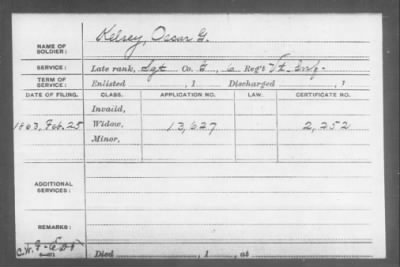 Kelsey, Oscar G.
NAME OF
SOLDIER:
SERVICE: Late rank, Sgt Co. G, 6 Reg't Vt. Inf.
TERM OF
SERVICE: Enlisted , 1 Discharged , 1
DATE OF FILING. CLASS. APPLICATION NO. LAW. CERTIFICATE NO.
Invalid,
1863, Feb. 25 Widow, 13,627 2,252
Minor,
ADDITIONAL
SERVICES:
REMARKS:
Died , 1 , at